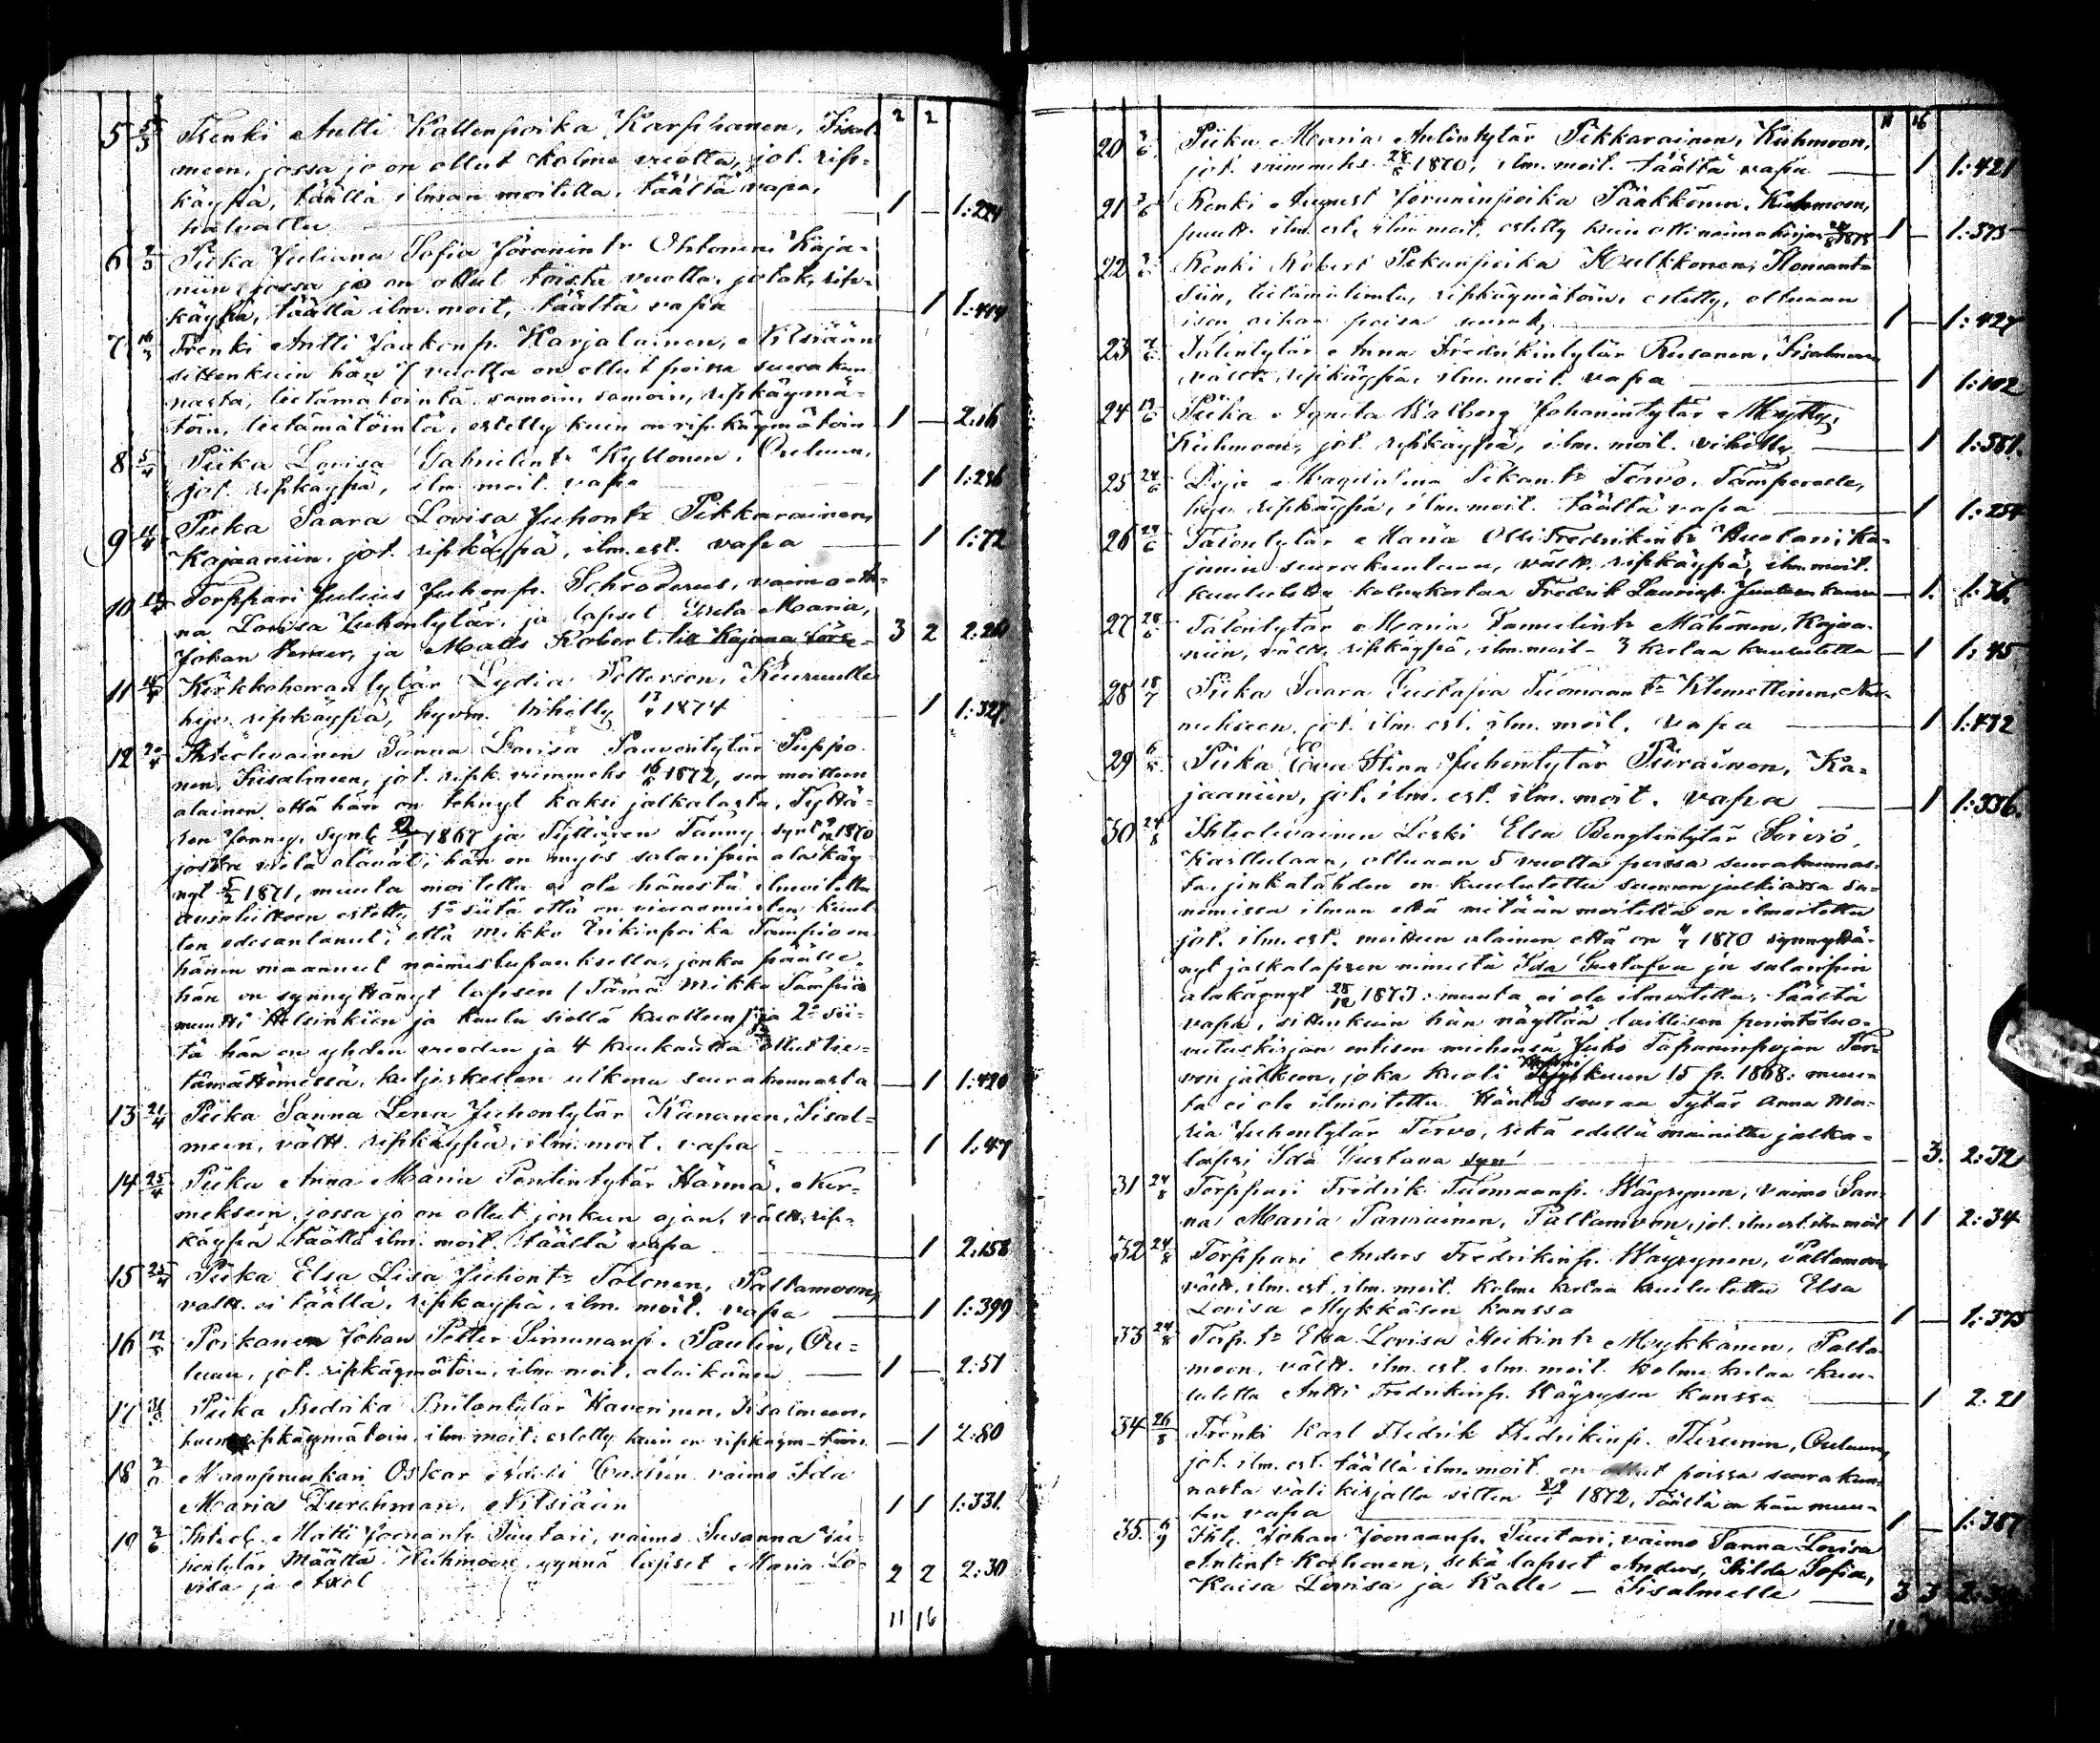 2 2
5 5/3 Trenki Antti Kallenpoika Karphanen, Iisal-
meen, jossa jo on ollut kolme vuotta, jot. rip-
käypä, täällä ilman moitetta, täältä vapa,
haluattu 1 — 1:224
6 Piika Juliana Sofia Joranint:r Ohtonen Kaja-
niin jossa jo on ollut toista vuotta, jotak, ripi-
käypä, täällä ilm. moit, täältä vapa 1 1:444
7 Trenki Antti Jaakonp. Karjalainen, Nilsiään
sittenkuin hän 7 vuotta on ollut poissa seurakun
nasta, tietämätöintä samoin, samoin, ripkäymä-
töin, tietämätöintä, estetty kuin on rip.käymätöin 1 — 2:16
8 5/4 Piika Lovisa Gabrielint:r Kyllönen, Ouluun,
jot. ripkäypä, ilm. moit. vapa 1 1:286
9 Piika Saara Lovisa Juhont:r Pikkarainen,
Kajaaniin, jot. ripkäypä, ilm. est. vapa — 1 1:72
10 Torppari Julius Juhonp. Schroderus, vaimo An-
na Lovisa Juhontytär, ja lapset Greta Maria,
Johan Verner, ja Matts Robert 3 2 2:20
11 Kirkkoherrantytär Lydia Petterson, Kiuruulle
hyv. ripkäypä, hyvm. Vihitty 17/4 1874 1 1:327.
12 20/4 Itsellinen Sanna Lovisa Pauvontytär Piippo
nen, Iisalmeen, jot. ripk. viimmeks 16/6 1872, sen moitteen
alainen että hän on tehnyt kaksi jalkalasta, Tyttä-
ren Jenny, synt. 1867 ja Tyttären Fanny synt. 1870
jotka vielä elävät; hän on myös salaripin ala käy-
nyt 5/2 1871, muuta moitetta ei ole hänestä ilmoitettu
avioliittoon estetty, 1:o siitä että on vierasmiesten kuul
ten edesantanut, että Mikko Erikinpoika Tampio on
hänen maannut naimislupauksella, jonka päälle
hän on synnyttänyt lapsen (Tämä Mikko Tampio
muutti Helsinkiin ja kuulu siellä kuolleen) ja 2:o sii-
tä hän on yhden vuoden ja 4 kuukautta ollut tie-
tämättömissä, kuljeskellen ulkona seurakunnasta — 1 1:420
13 21/4 Piika Sanna Lena Juhontytär Kananen, Iisal-
meen, vältt. ripkäypä, ilm. moit. vapa 1 1:47
14 25/4 Piika Anna Maria Pentintytär Hännä, Nur-
mekseen, jossa jo on ollut jonkun ajan, vältt. rip-
käypä täällä ilm. moit. täältä vapa 1 2:158
15 25/4 Piika Elsa Lisa Juhont:r Tolonen, Paltamoon,
valtt. ei täällä, ripkäypä, ilm. moit. vapa 1 1:399
16 Poikanen Johan Petter Simunanp. Paulin, Ou-
luun, jot. ripkäymätöin, ilm. moit. alaikänen 1 — 2:51
17 Piika Fredrika Pritantytär Haverinen, Iisalmeen,
huono ripkäymätoin, ilm. moit. estetty kuin on ripkäym-töin — 1 2:80
18 Maanpruukari Oskar vaimo Ida
Maria Durchman, Nilsiään 1 1 1:331.
19 Itsell. Matti Joonanp. Suutari, vaimo Susanna Ju-
hontytär Määttä, Kuhmoon, ynnä lapset Maria Lo-
visa ja Axel 2 2 2:30
11 16
11 16
20 Piika Maria Antintytär Pikkarainen, Kuhmoon,
jot. viimmeks. 1870, ilm. moit. täältä vapa — 1 1:421
21 Renki August Joraninpoika Pääkkönen, Kuhmoon,
puutt. ilm. est. ilm. moit. estetty kuin otti naimakirjan 1875 1 — 1:575
22 Renki Robert Pekanpoika Kulkkonen, Ilomant-
siin, tietämätöintä, ripkäymätöin, estetty, oltuaan
ison aikaa poissa seurak, 1 — 1:427
23 Talontytär Anna Fredrikintytär Rusanen, Iisalmeen
vältt. ripkäypä, ilm. moit. vapa 1 1:102
24 Piika Agneta Walborg Johanintytär Mylly,
Kuhmoon, jot. ripkäypä, ilm. moit. vihitty 1 1:581.
25 24/6 Pija Magdalena Pekant:r Tervo, Tampereelle,
hyv. ripkäypä, ilm. moit. täältä vapa 1 1:254
26 24/6 Talontytär Maria Olli Fredrikint:r Huotari, Ka-
janin seurakuntaan, vältt. ripkäypä, ilm. moit.
kuulutettu kolmekertaa Fredrik Laurinp. — 1. 1:36.
27 28/6 Talontytär Maria Samuelint:r Mähönen, Kajaa-
niin, vältt. ripkäypä, ilm. moit. 3 kertaa kuulutettu — 1 1:45
28 18/7 Piika Saara Gustafva Tuomaant:r Klemettinen, Nur-
mekseen, jot. ilm. est. ilm. moit, vapa 1 1:432
29 6/8 Piika Eva Stina Juhontytär Piirainen, Ka-
jaaniin, jot. ilm. est. ilm. moit. vapa 1 1:336.
30 24/8 Itsellinen Leski Elsa Bengtintytär Sorvio,
Karttulaan, oltuaan 5 vuotta poissa seurakunnas-
ta, jonkatähden on kuulutettu suomen julkisissa sa-
nomissa ilman että mitään moitetta on ilmoitettu
jot. ilm. est. moitteen alainen että on 4/7 1870 synnyttä-
nyt jalkalapsen nimeltä Ida Gustafva ja salaripin
alakäynyt 28/12 1873: muuta ei ole ilmoitettu, täältä
vapa, sittenkuin hän näyttää laillisen perintöluo-
vutuskirjan entisen miehensä Juho Tapaninpojan Ter-
von jälkeen, joka kuoli kuun 15 p. 1868: muu-
ta ei ole ilmoitettu. Häntä seuraa Tytär Anna Ma-
ria Juhontytär Tervo, sekä edellä mainittu jalka-
lapsi Ida Gustava syn! — 3. 2:32
31 24/8 Torppari Fredrik Tuomaanp. Wäyrynen, vaimo San-
na Maria Parviainen, Paltamoon, jot. ilm est. ilm moit 1 1 2:34
32 24/8 Torppari Anders Fredrikinp. Wäyrynen, Paltamoon,
vältt. ilm. est. ilm. moit. Kolme kertaa kuulutettu Elsa
Lovisa Mykkäsen kanssa 1 — 1:375
33 24/8 Torp. t:r Elsa Lovisa Heikint:r Mykkänen, Palta-
moon, vältt. ilm. est. ilm. moit. Kolme kertaa kuu-
lutettu Antti Fredrikinp. Wäyrysen kanssa 1 2:21
34 26/8 Trenki Karl Fredrik Fredrikinp. Tirronen, Ouluun,
jot. ilm. est. täällä ilm. moit. on ollut poissa seurakun-
nasta välikirjalla sitten 1872, täältä on hän muu-
ten vapa 1 — 1:387
35. 6/9 Itsl. Johan Joonaanp. Suutari, vaimo Sanna Lovisa
Antint:r Korhonen, sekä lapset Anders, Hilda Sofia,
Kaisa Lovisa ja Kalle — Iisalmelle 3 3